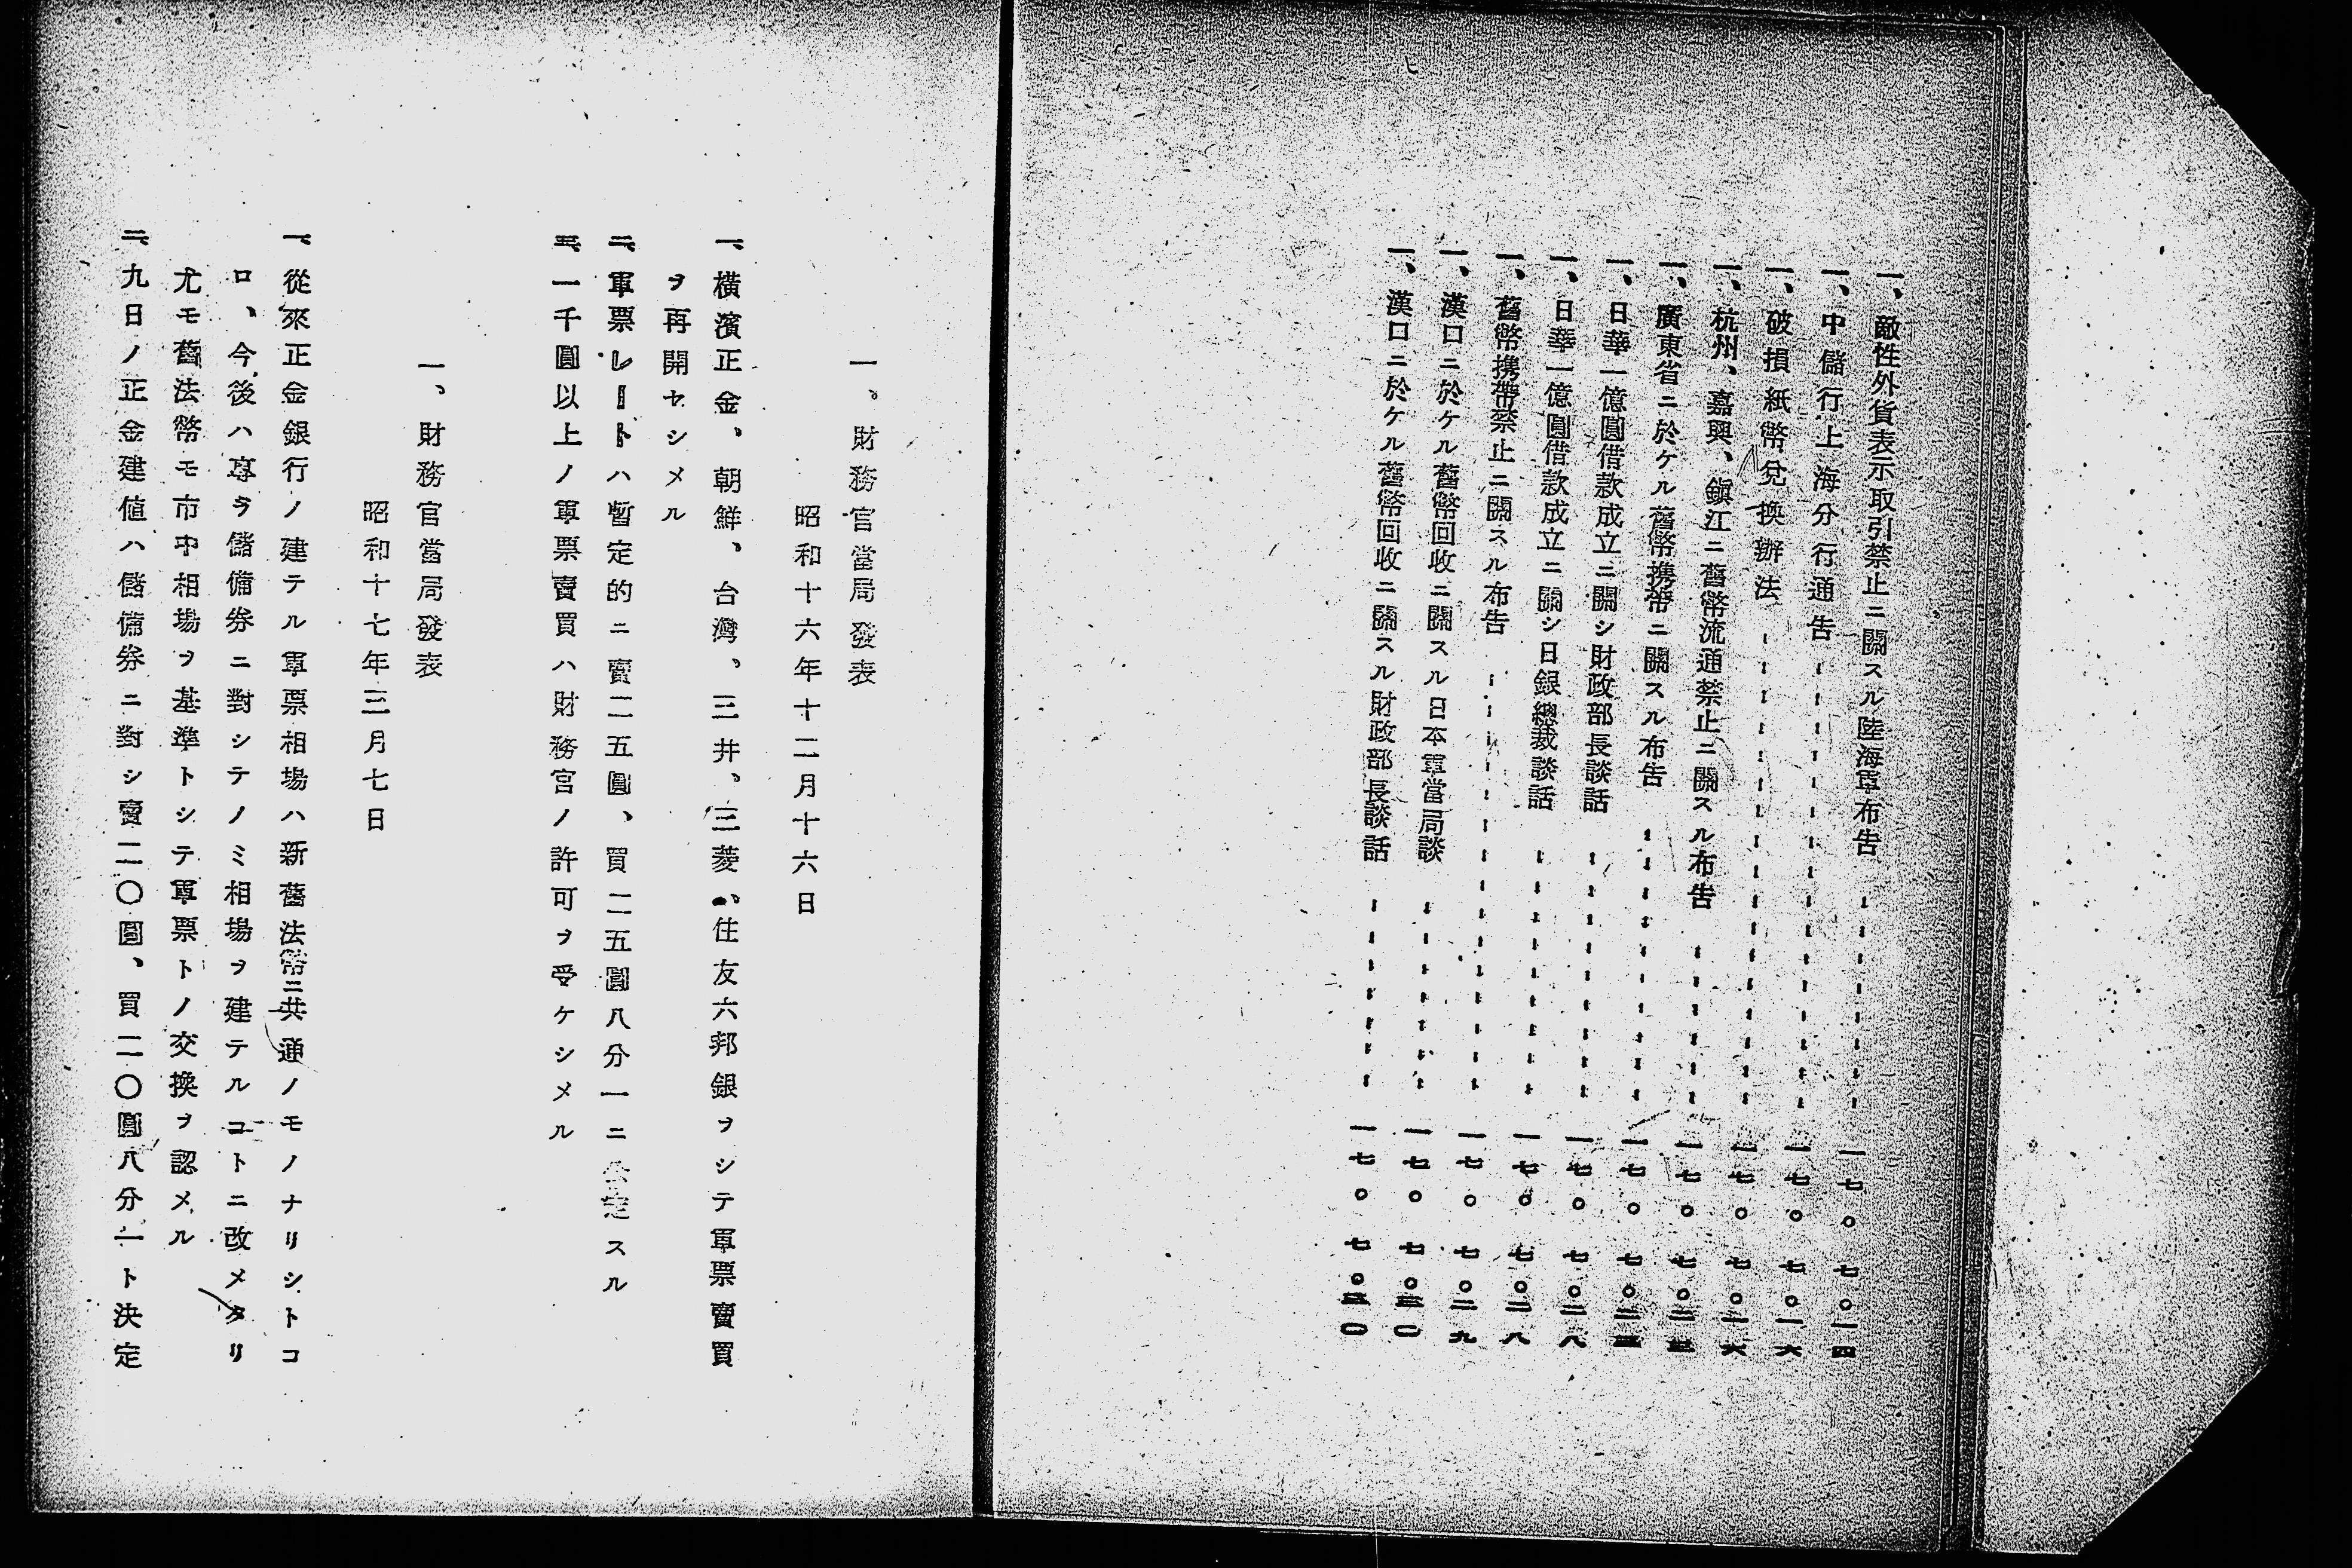 一、敵性外貨表示取引禁止ニ關スル陸海軍布告 --------一七。七。一四
一、中儲行上海分行通告 ----------------一七。七。一六
一、破損紙幣兌換辦法 -----------------一七。七。二六
一、杭州、嘉興、鎭江ニ舊幣流通禁止ニ關スル布告 ------一七。七。二三
一、廣東省ニ於ケル舊幣携帶ニ關スル布告 ----------一七。七。二三
一、日華一億圓借款成立ニ關シ財政部長談話 ---------一七。七。二八
一、日華一億圓借款成立ニ關シ日銀總裁談話 ---------一七。七。二八
一、舊幣携帶禁止ニ關スル布告 ---------------一七。七。二九
一、漢口ニ於ケル舊幣回收ニ關スル日本軍當局談 -------一七。七。三〇
一、漢口ニ於ケル舊幣回收ニ關スル財政部長談話 -------一七。七。三〇
一。財務官當局發表
昭和十六年十二月十六日
一、橫濱正金、朝鮮、台灣、三井、三菱、住友六邦銀ヲシテ軍票賣買
ヲ再開セシメル
二、軍票レートハ暫定的ニ賣二五圓、買二五圓八分一ニ公定スル
三、一千圓以上ノ軍票賣買ハ財務官ノ許可ヲ受ケシメル
一、財務官當局發表
昭和十七年三月七日
一、從來正金銀行ノ建テル軍票相場ハ新舊法幣ニ共通ノモノナリシトコ
ロ、今後ハ專ラ儲備券ニ對シテノミ相場ヲ建テルコトニ改メタリ
尤モ舊法幣モ市中相場ヲ基準トシテ軍票トノ交換ヲ認メル
二、九日ノ正金建値ハ儲備券ニ對シ賣二〇圓、買二〇圓八分一ト決定